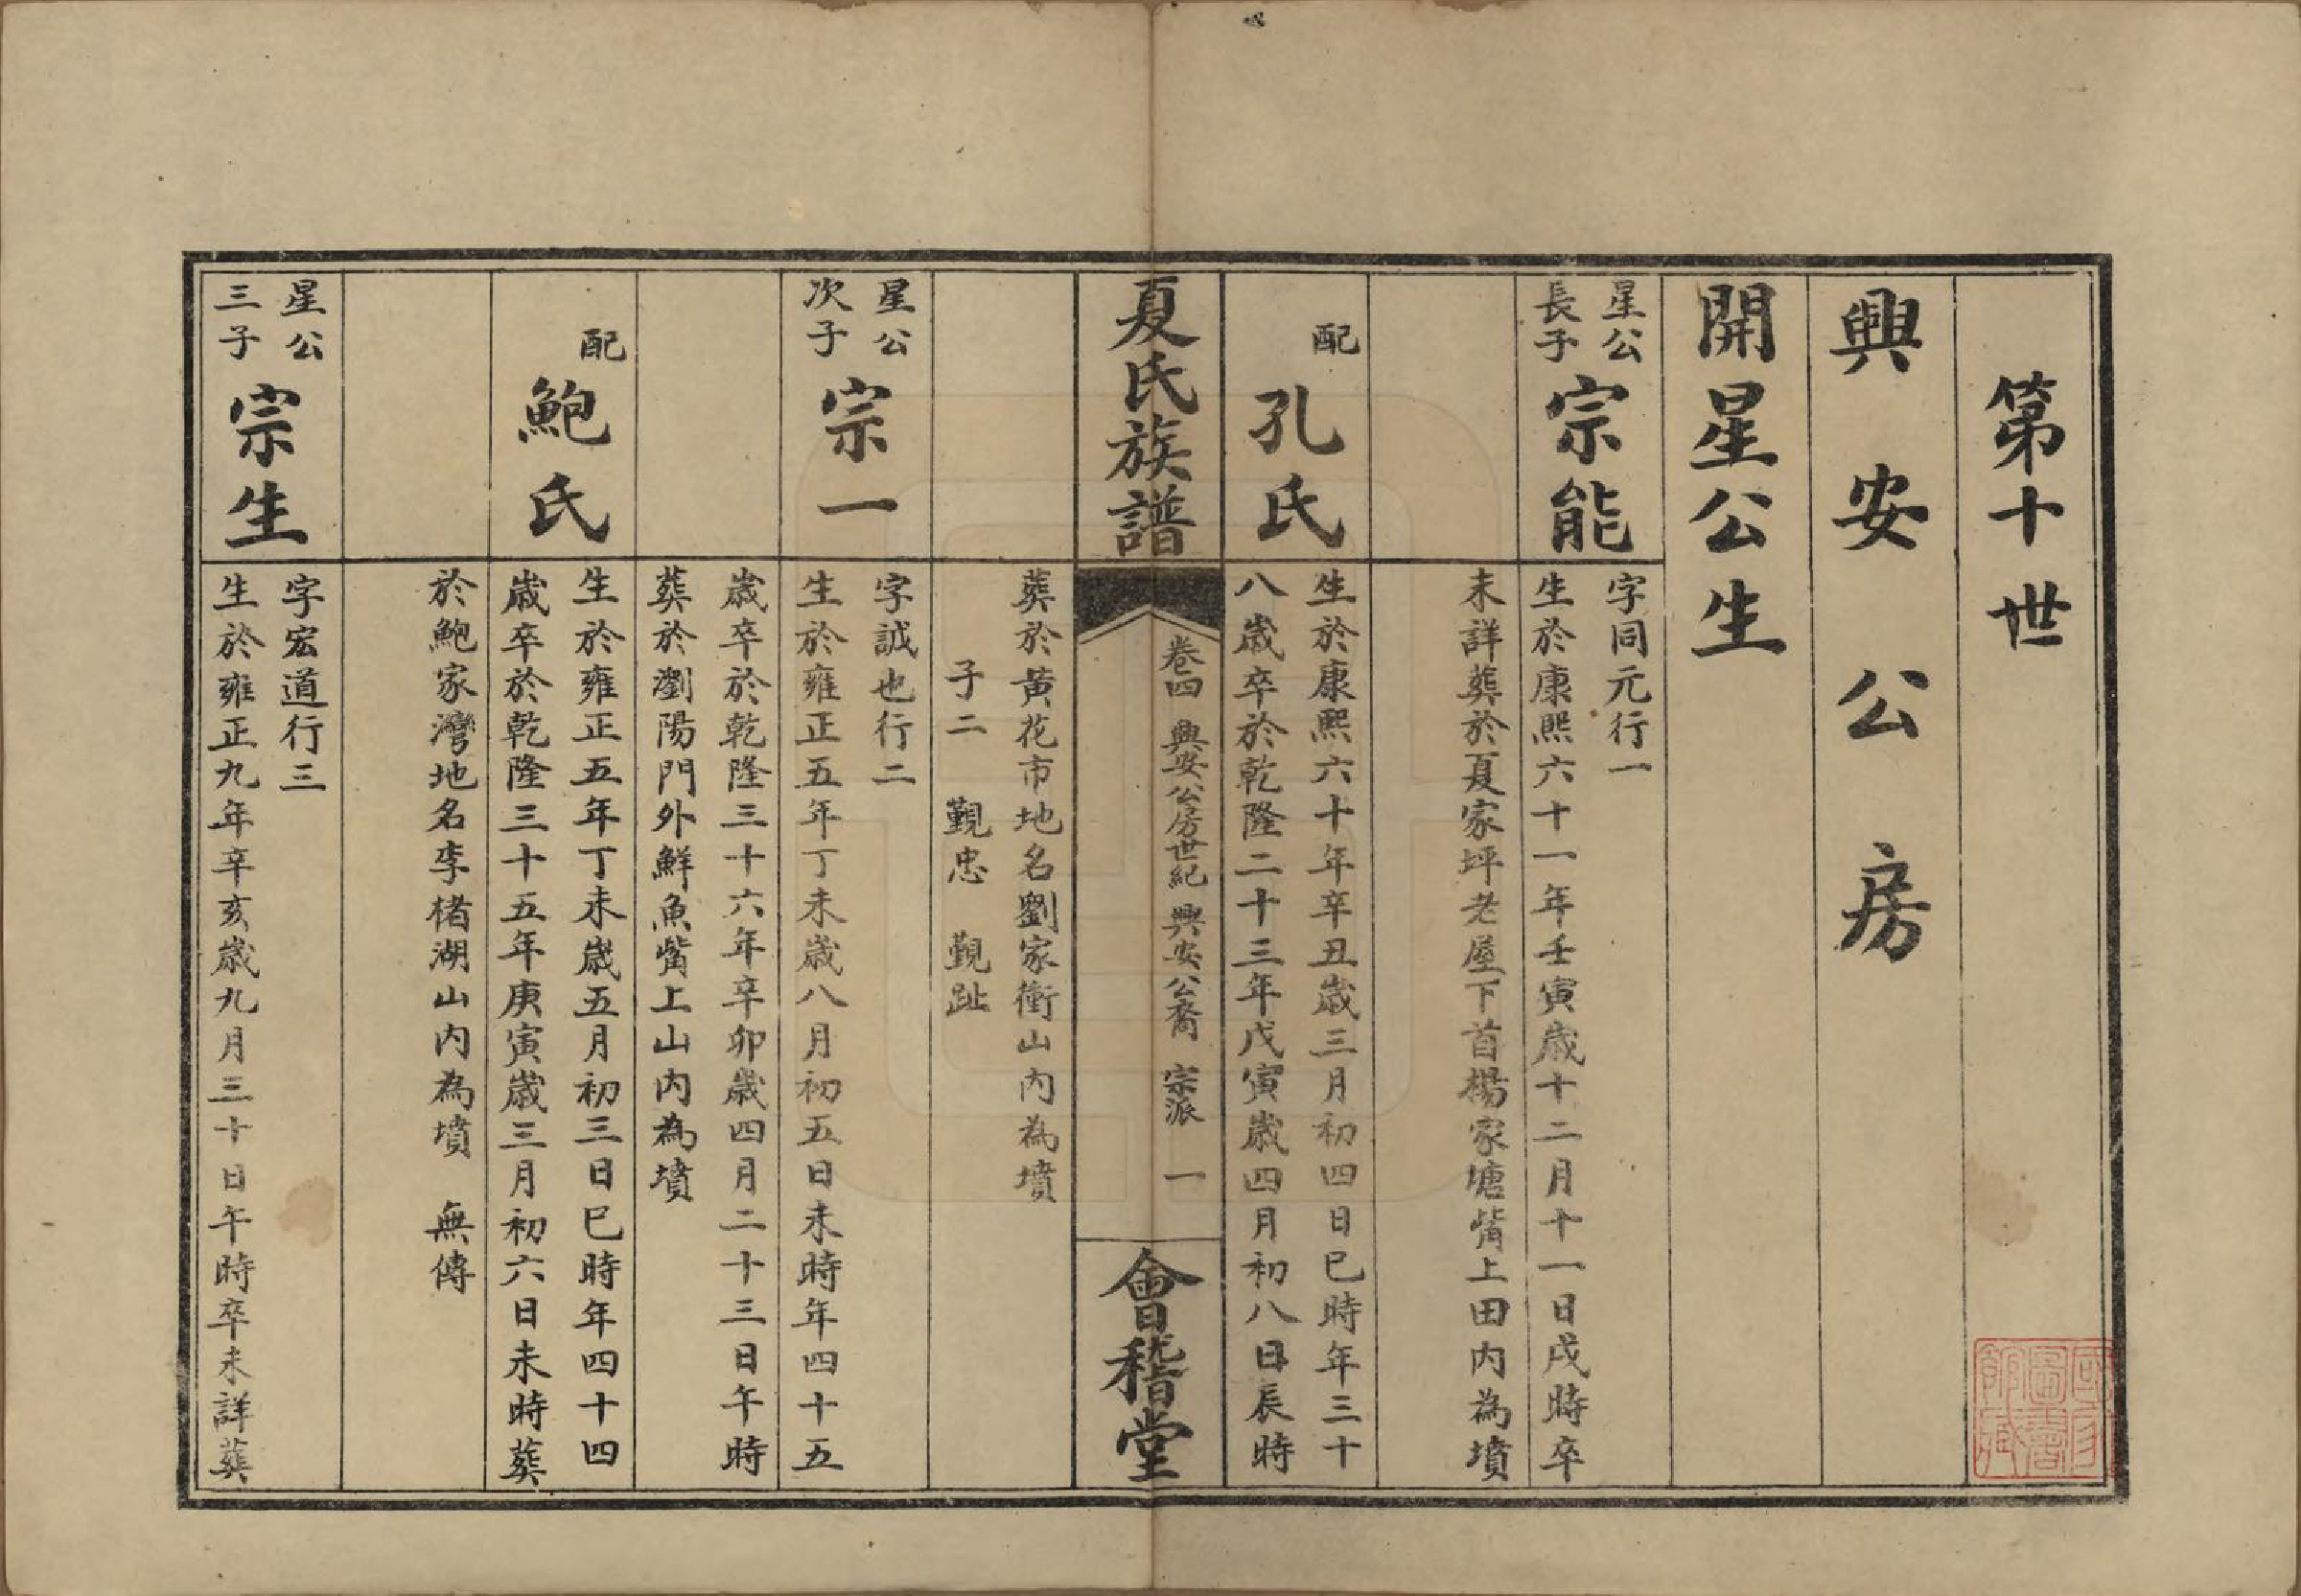 第十世
興安公房
開星公生
星公
長子
宗能
字同元行一
生於康熙六十一年壬寅歲十二月十一日戌時卒
未詳葬於夏家坪老屋下首楊家塘嘴上田内為墳
配
孔氏
生於康熙六十年辛丑歲三月初四日巳時年三十
八歲卒於乾隆二十三年戊寅歲四月初八日辰時
夏氏族譜
卷四 興安公房世紀 興安公裔 宗派 一
會稽堂
葬於黄花市地名劉家衝山内為墳
子二 覲忠 覲趾
星公
次子
宗一
字誠也行二
生於雍正五年丁未歲八月初五日未時年四十五
歲卒於乾隆三十六年辛卯歲四月二十三日午時
葬於瀏陽門外鮮魚嘴上山内為墳
配
鮑氏
生於雍正五年丁未歲五月初三日巳時年四十四
歲卒於乾隆三十五年庚寅歲三月初六日未時葬
於鮑家灣地名李楮湖山内為墳 無傳
星公
三子
宗生
字宏道行三
生於雍正九年辛亥歲九月三十日午時卒未詳葬
國家
圖書
館藏